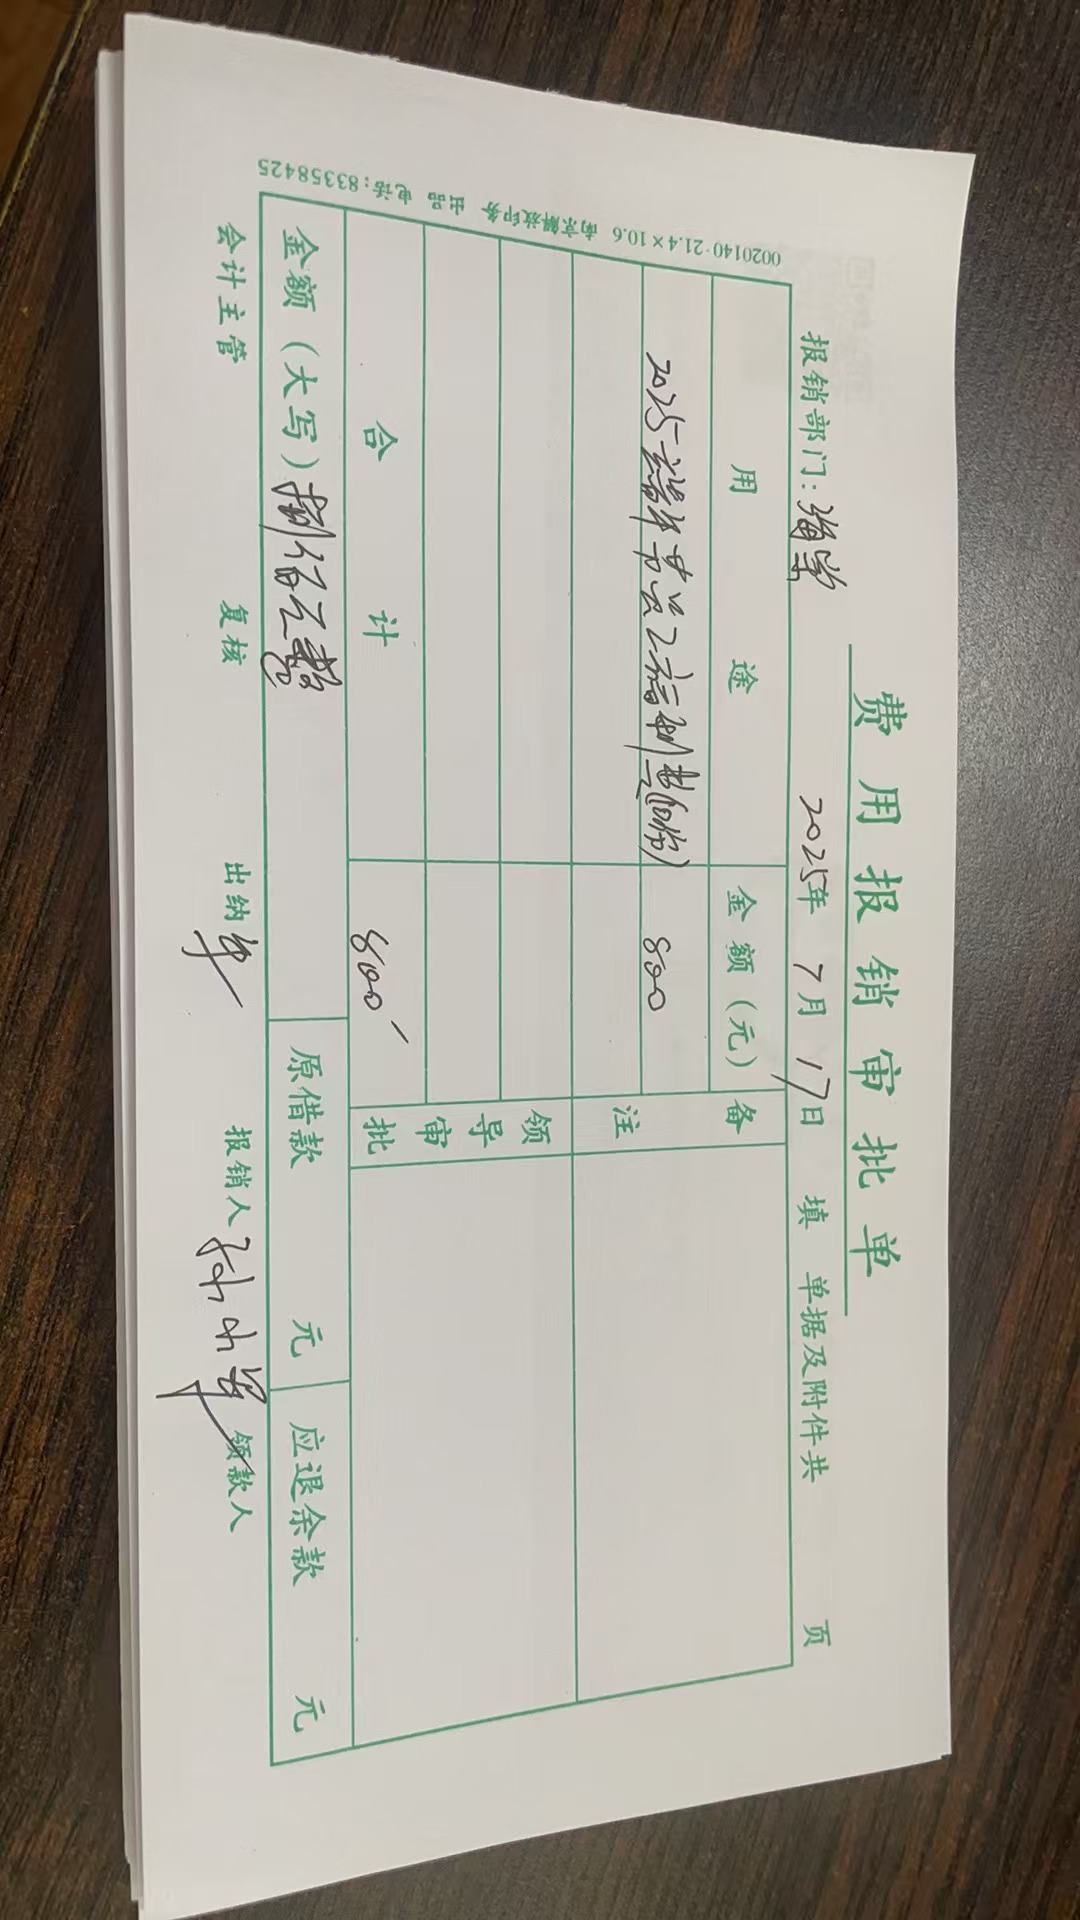 费用报销审批单
报销部门: 2025年 7月 17日 填 单据及附件共 页
用途 金额(元) 备注
2025端午节员工福利费(10份) 800
合计 800 领导审批
金额(大写)捌佰元整 原借款 元 应退余款 元
会计主管 复核 出纳 报销人 领款人
0020140·21.4×10.6 南京解放印务 出品 电话:83358425